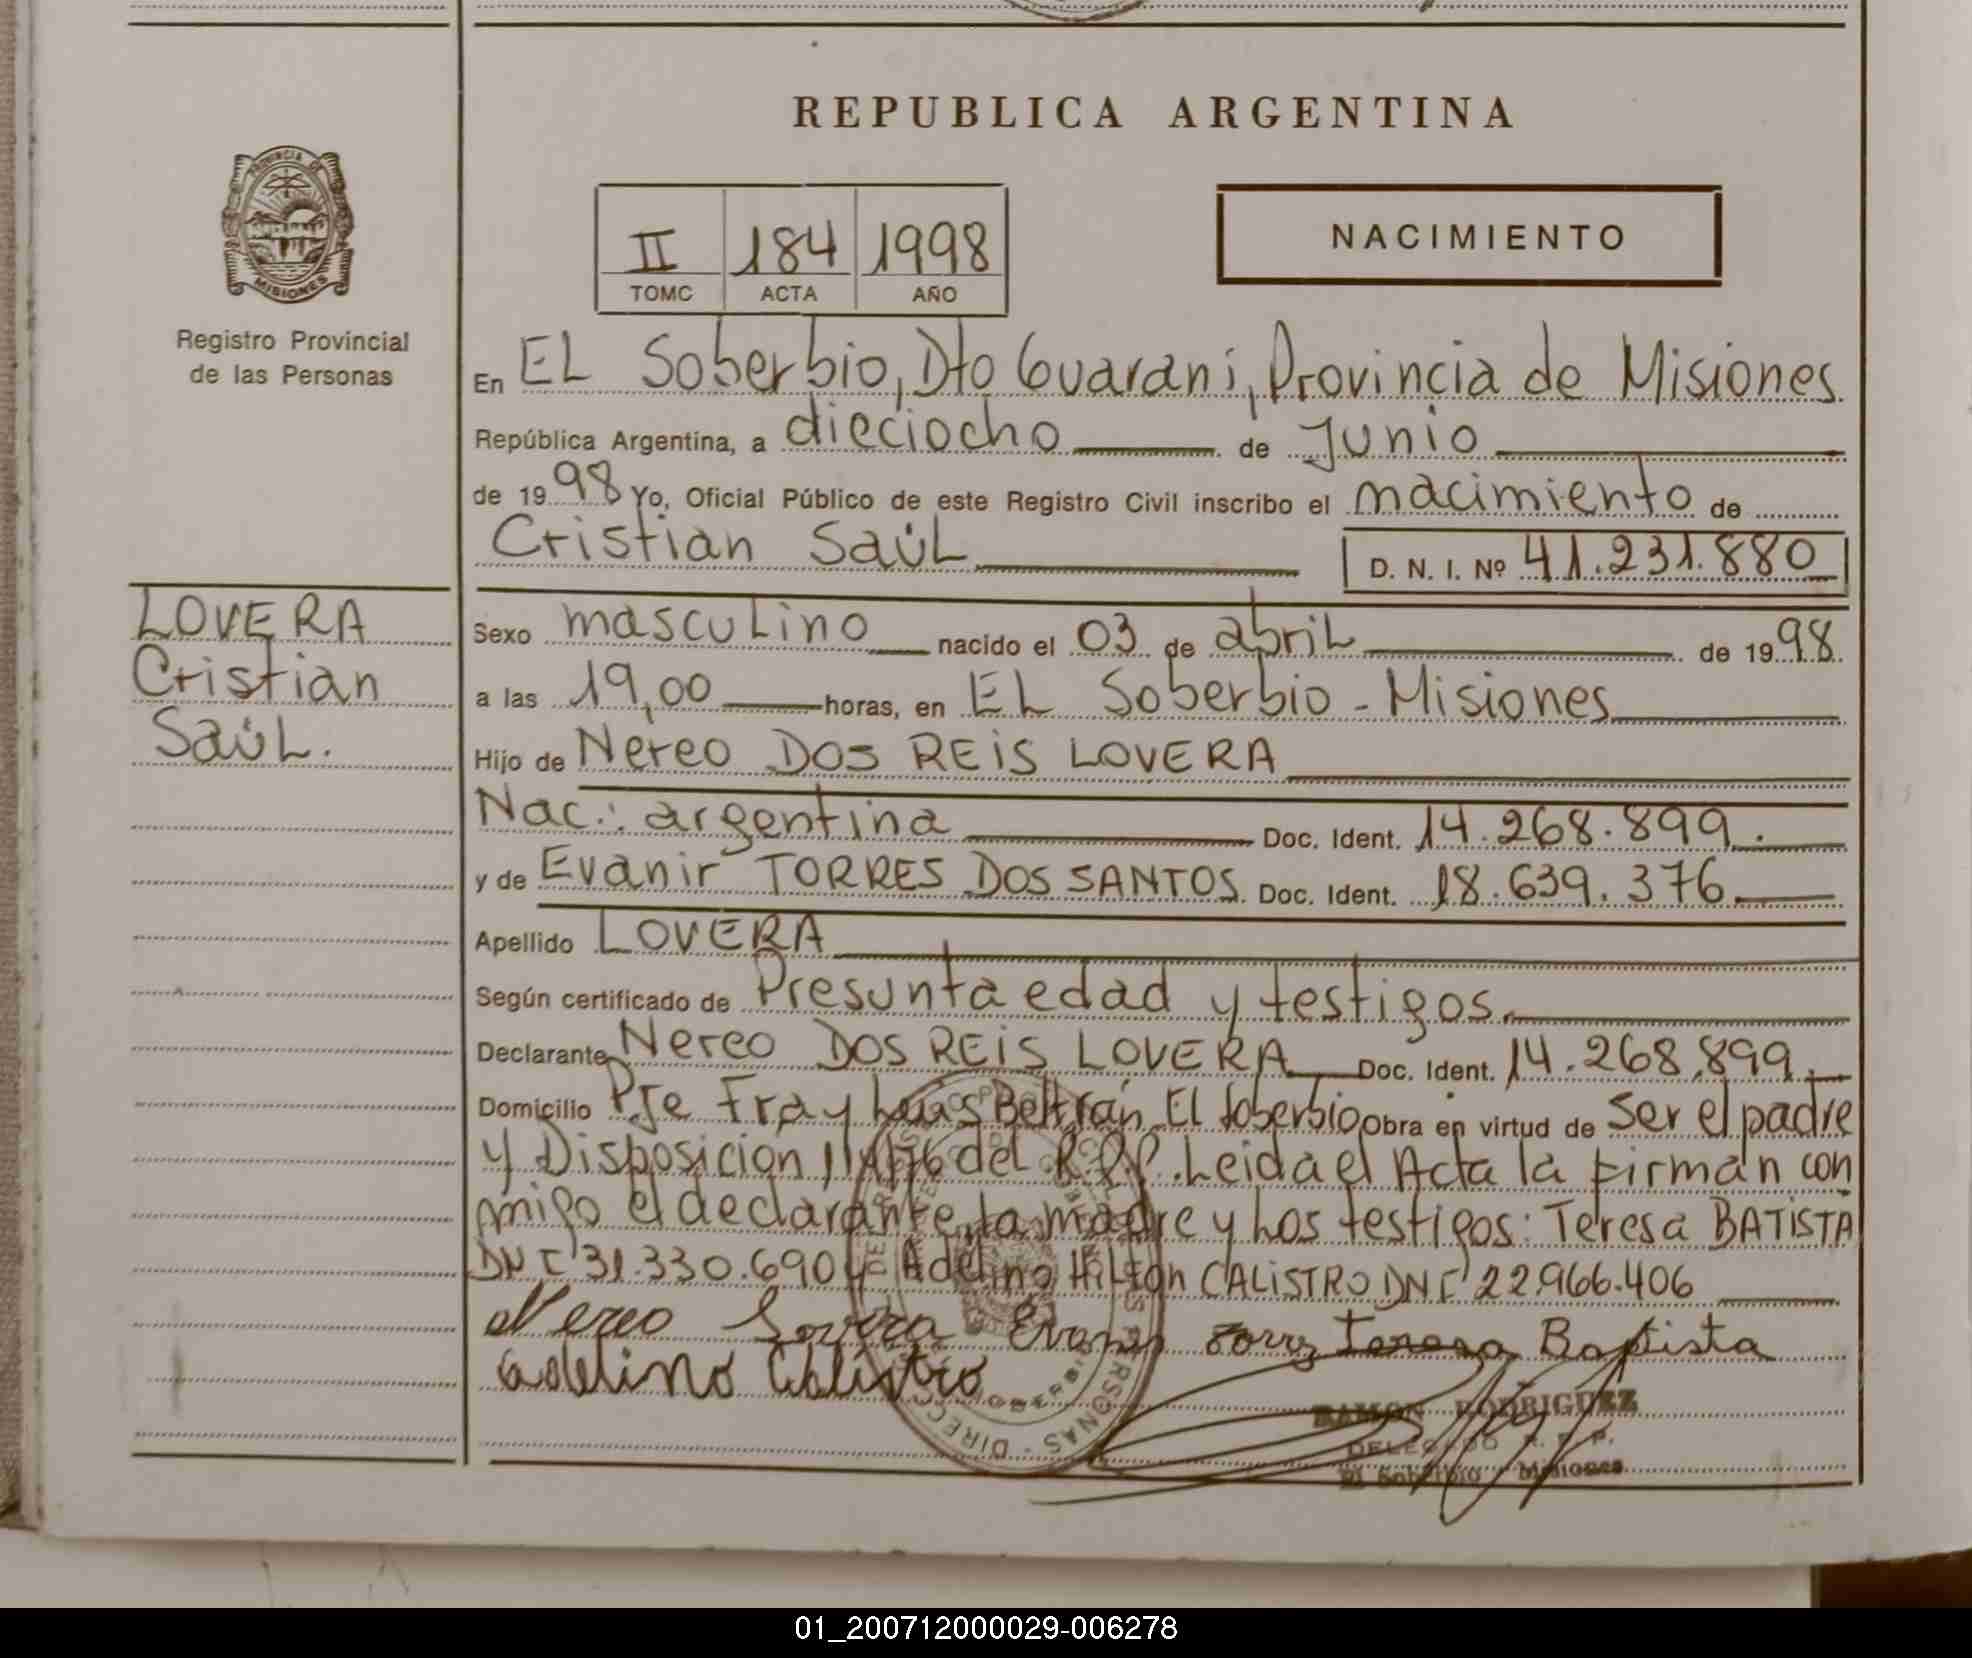 REPUBLICA ARGENTINA
PROVINCIA DE MISIONES
Registro Provincial
de las Personas
II 184 1998
TOMC ACTA AÑO
NACIMIENTO
En EL Soberbio, Dto Guaraní, Provincia de Misiones
República Argentina, a dieciocho de Junio
de 1998 Yo, Oficial Público de este Registro Civil inscribo el nacimiento de
Cristian Saúl D. N. I. Nº 41.231.880
LOVERA
Cristian
Saúl.
Sexo masculino nacido el 03 de abril de 1998
a las 19,00 horas, en EL Soberbio - Misiones
Hijo de Nereo DOS REIS LOVERA
Nac.: argentina Doc. Ident. 14.268.899.
y de Evanir TORRES DOS SANTOS Doc. Ident. 18.639.376
Apellido LOVERA
Según certificado de Presunta edad y testigos.
Declarante Nereo DOS REIS LOVERA Doc. Ident. 14.268.899.
Domicilio Pje Fray Luis Beltrán El Soberbio Obra en virtud de Ser el padre
y Disposicion del R.P.P. Leida el Acta la firman con
migo el declarante, la madre y Los testigos: Teresa BATISTA
DNI 31.330.690 y Adelino Hilton CALISTRO DNI 22.966.406
Nereo Lovera Evanir Torres Teresa Baptista
Adelino Calistro
RAMON RODRIGUEZ
DELEGADO R. P. P.
El Soberbio - Misiones
01_200712000029-006278